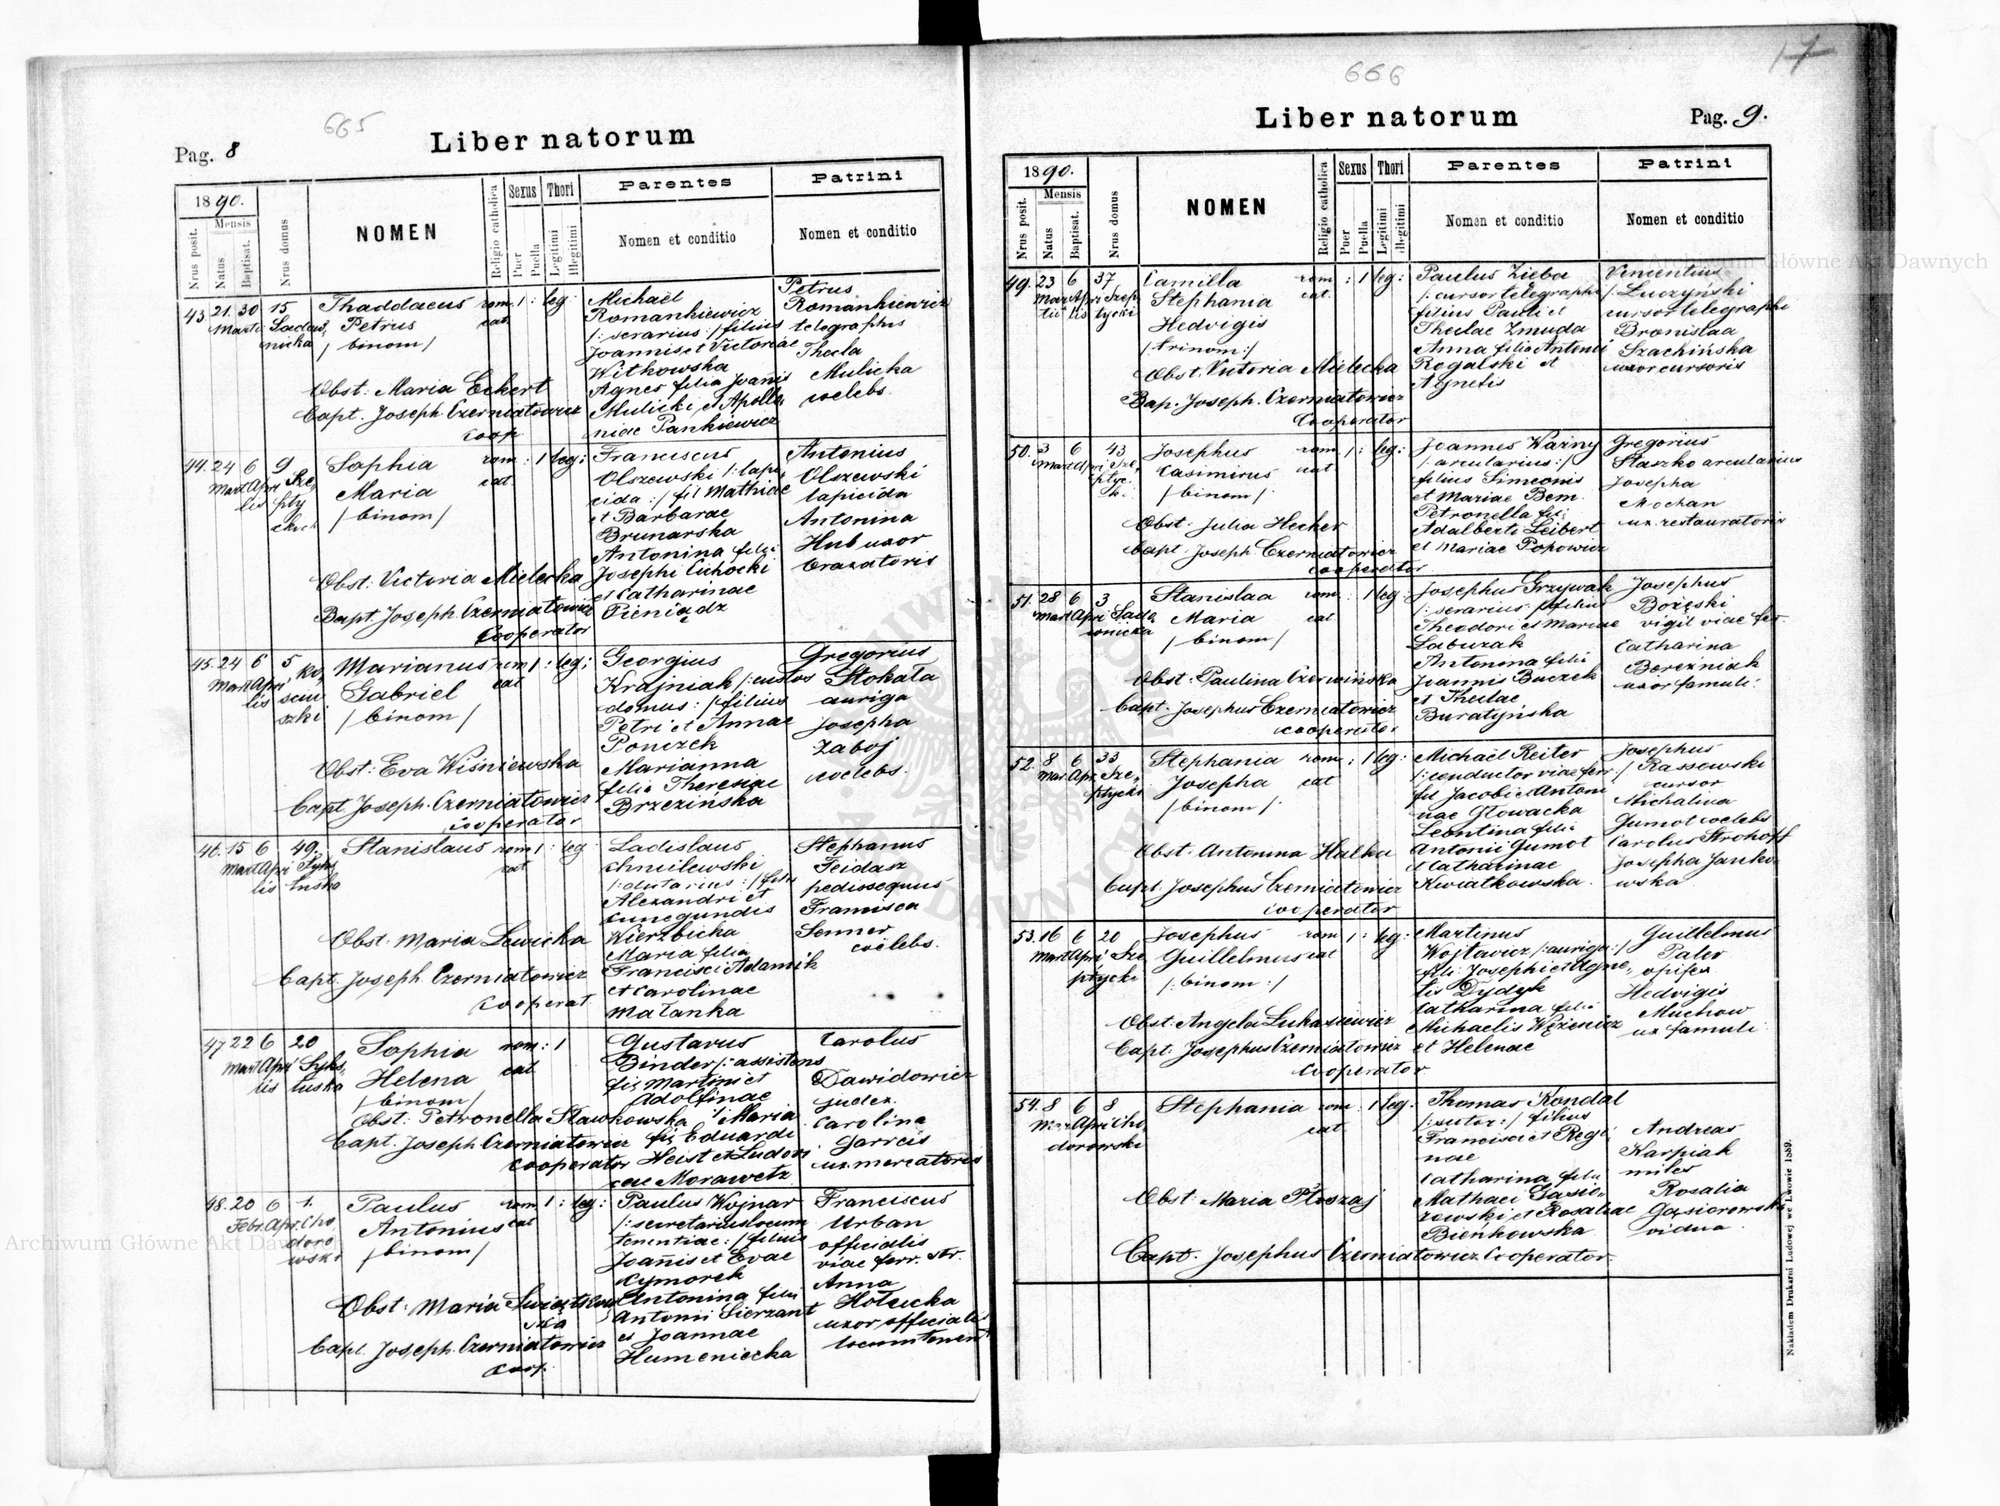 665
Pag. 8
Liber natorum
1890.
Mensis
Nrus posit.
Natus
Baptisat.
Nrus domus
NOMEN
Religio catholica
Sexus
Puer
Puella
Thori
Legitimi
Illegitimi
Parentes
Nomen et conditio
Patrini
Nomen et conditio
43. 21. 30 15 Thaddaeus rom. 1 : leg. Michaël Petrus
Petrus cat. Romankiewicz Romankiewicz
/ binom / /: serarius :/ filius telegraphis
Joannis et Victoriae Thecla
Withowska Mulicka
Obst: Maria Eckert Agnes filia Joañis coelebs.
Capt. Joseph. Czerniatowicz Mulicki et Apollo
coop. niae Pankiewicz
44. 24 6 9 Sophia rom. : 1 leg: Franciscus Antonius
Maria cat. Olszewski /: lapi Olszewski
/ binom / cida :/ fil Mathiae lapicida
et Barbarae Antonina
Brunarska Hub uxor
Antonina filia
Obst: Victoria Mielecka Josephi Cichocki
et Catharinae
Bapt. Joseph. Czerniatowicz Pieniądz
Cooperator
45. 24 6 5 Marianus rom 1 : leg: Georgius Gregorius
Gabriel cat Krajniak /: custos Stokata
/ binom / domus :/ filius auriga
Petri et Annae Josepha
Ponczek Zaboj
Obst: Eva Wiśniewska Marianna coelebs.
filia Theresiae
Capt Joseph. Czerniatowicz Brzezińska
cooperator
46. 15 6 49. Stanislaus rom 1 : leg Ladislaus Stephanus
cat Chmilewski Feidasz
filius pedissequus
Alexandri et Francisca
Cunegundis Senner
Obst. Maria Lewicka Wierzbicka coelebs.
Maria filia
Capt. Joseph. Czerniatowicz Francisci Adamik
cooperat. et Carolinae
Matanka
47 22 6 20 Sophia rom : 1 Gustavus Carolus
Helena cat Binder /: assistens Dawidowicz
/ binom / fil Martini et judex.
Adolfinae
Obst: Petronella Stawkowska Maria Carolina
Capt. Joseph Czerniatowicz fil Eduardi Garreis
cooperator Heist et Ludovi ux mercatoris
cae Morawetz
48. 20 6 1. Paulus rom 1 : leg: Paulus Wojnar Franciscus
Febr. Apr. Cho Antonius cat /: secretarius locum Urban
doro / binom / tenentiae :/ filius officialis
wski Joañis et Evae viae ferr. str.
Cymorek Anna
Obst: Maria Antonina filia
Antonii Sierzant uxor officialis
Capt. Joseph. Czerniatowicz et Joannae locumtenent
coop. Humeniecka
17
666
Liber natorum
Pag. 9.
1890.
Mensis
Nrus posit.
Natus
Baptisat.
Nrus domus
NOMEN
Religio catholica
Sexus
Puer
Puella
Thori
Legitimi
Illegitimi
Parentes
Nomen et conditio
Patrini
Nomen et conditio
49. 23 6 37 Camilla rom : 1 leg: Paulus Zieba Vincentius
Stephania cat. /: cursor telegraphi / Luczyński
Hedvigis filius Pauli et cursor telegraphi
/ trinom :/ Theclae Zmuda Bronislaa
Anna filia Antonii Szachińska
Obst. Victoria Mielecka Rogalski et uxor cursoris
Agnetis
Bap. Joseph. Czerniatowicz
Cooperator
50. 3 6 43 Josephus rom 1 : leg: Joannes Ważny Gregorius
Casimirus cat /: arcularius :/ Staszko arcularius
/ binom /. filius Simeonis Josepha
et Mariae Bem. Mochan
Petronella fil: ux. restauratoris
Obst. Julia Hecker Adalberti Leibert
Capt. Joseph Czerniatowicz et Mariae Popowicz
cooperator
51. 28 6 3 Stanislaa rom : 1 leg: Josephus Grzywak Josephus
Maria cat /: serarius :/ filius Bożęski
/ binom / Theodori et Mariae vigil viae fer.
Labuzak Catharina
Antonina filia Berezniak
Obst: Paulina Czerwińska Joannis Buczek uxor famuli.
et Theclae
Capt. Josephus Czerniatowicz Buratyńska
cooperator
52. 8 6 33 Stephania rom. : 1 leg: Michaël Reiter Josephus
Josepha cat /: conductor viae ferr :/ Rassowski
/ binom / fil Jacobi et Antoni cursor
nae Głowacka Michalina
Leontina filia Gumot coelebs
Obst: Antonina Halka Antonii Gumot Carolus Strohoff
et Catharinae Josepha Janko
Capt. Josephus Czerniatowicz Kwiatkowska. wska
cooperator
53. 16 6 20 Josephus rom 1 : leg: Martinus Guillelmus
Guillelmus cat Wojtawicz /: auriga :/ Pater
/: binom :/ fil: Josephi et Agne opifex
tis Dydyk Hedvigis
Catharina filia Muchow
Obst: Angela Lukasiewicz Michaelis ux famuli
Capt. Josephus Czerniatowicz et Helenae
cooperator
54. 8 6 8 Stephania rom : 1 leg: Thomas Kondal
cat /: sutor :/ filius
Francisci et Regi Andreas
nae Karpiak
Catharina filia miles
Obst: Maria Ptoszaj Mathaei Gąsio Rosalia
rowski et Rosaliae Gąsiorowska
Bieńkowska vidua.
Capt. Josephus Czerniatowicz Cooperator.
Nakładem Drukarni Ludowej we Lwowie 1889.
Archiwum Główne Akt Dawnych
Archiwum Główne Akt Dawnych